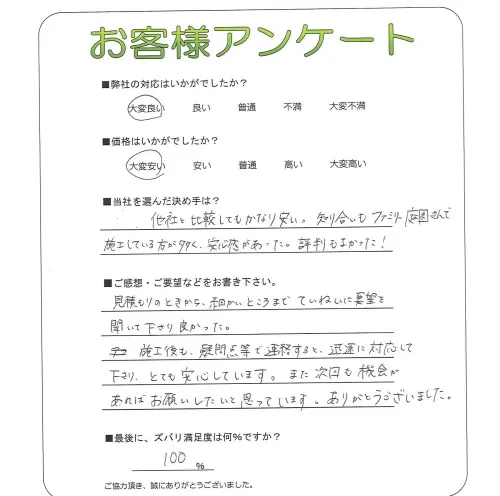 お客様アンケート
■弊社の対応はいかがでしたか？
大変良い 良い 普通 不満 大変不満
■価格はいかがでしたか？
大変安い 安い 普通 高い 大変高い
■当社を選んだ決め手は？
他社と比較してもかなり安い。知り合いもファミリー庭園さんで
施工している方が多く、安心感があった。評判もよかった！
■ご感想・ご要望などをお書き下さい。
見積もりのときから、細かいところまでていねいに要望を
聞いて下さり良かった。
施工後も、疑問点等で連絡すると、迅速に対応して
下さり、とても安心しています。また次回も機会が
あればお願いしたいと思っています。ありがとうございました。
■最後に、ズバリ満足度は何%ですか？
100 %
ご協力頂き、誠にありがとうございました。